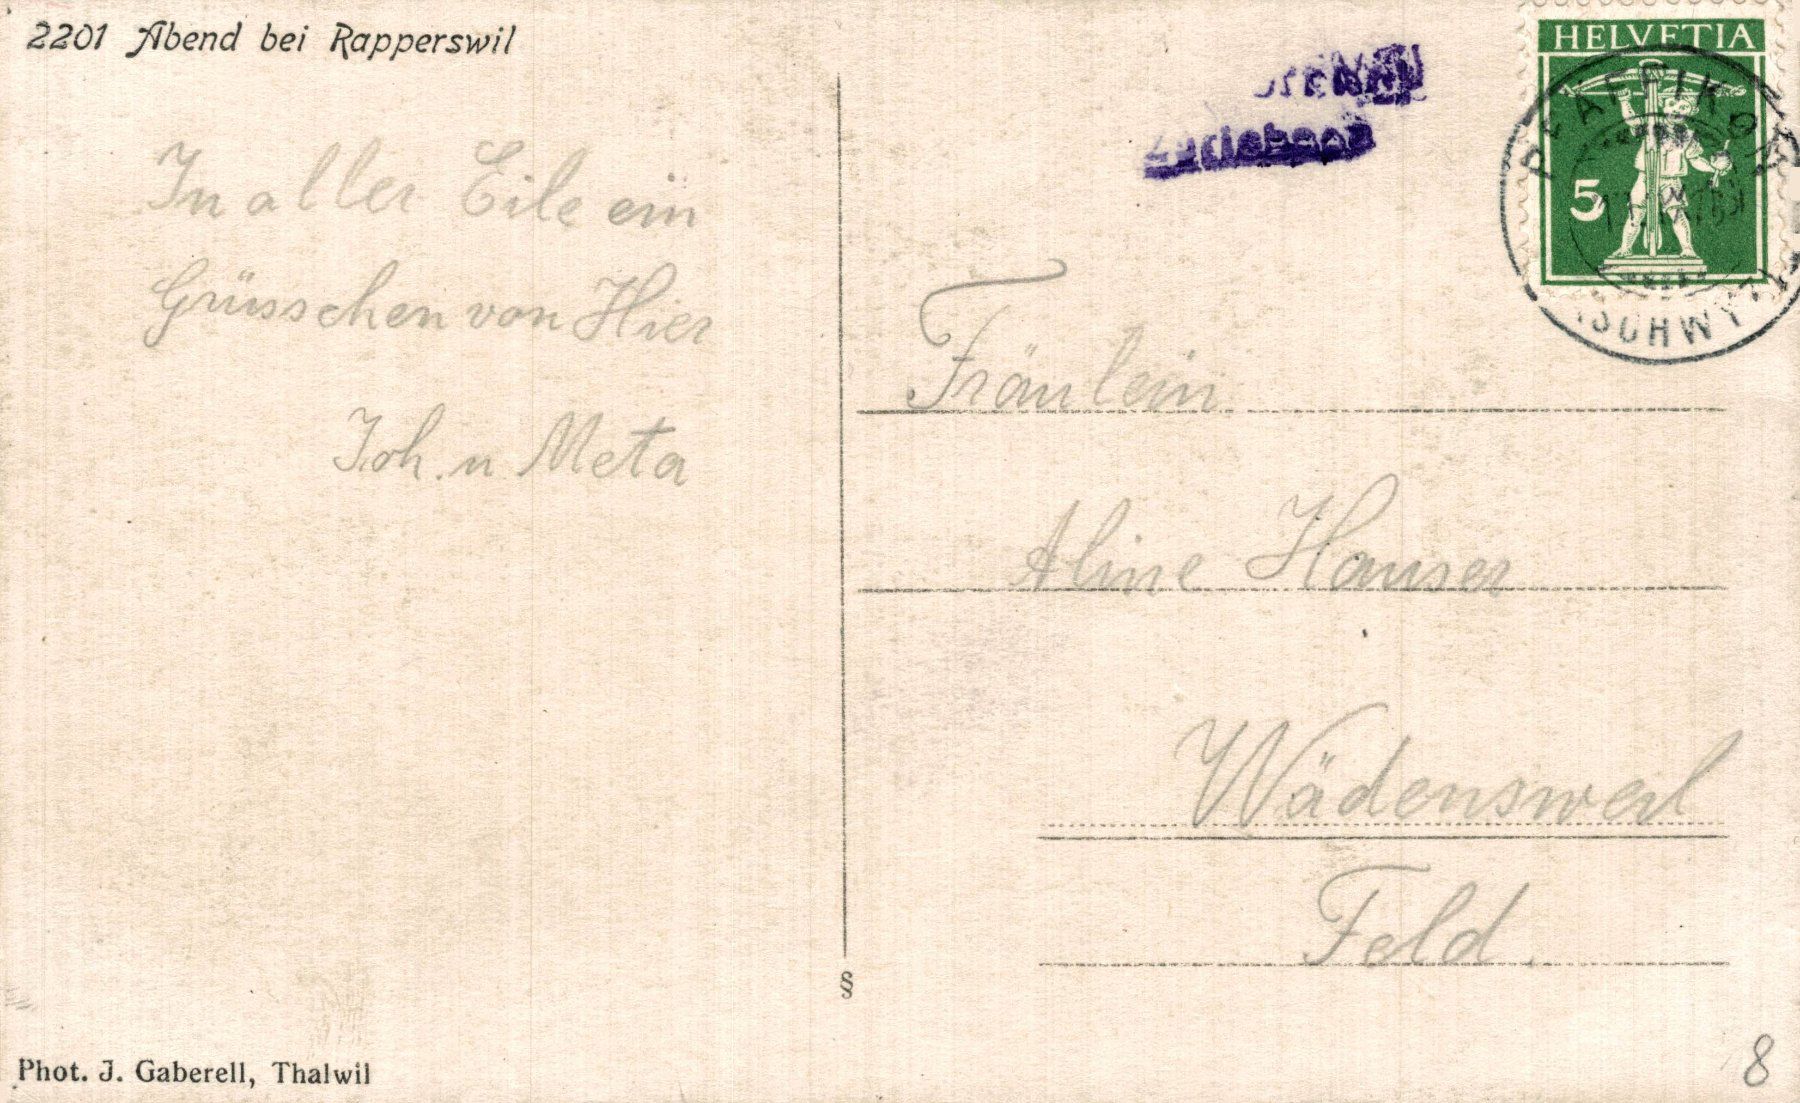 2201 Abend bei Rapperswil
HELVETIA
5
PFAEFFIKON
(SCHWYZ)
In aller Eile ein
Grüsschen von Hier
Joh. u Meta
Fräulein
Aline Hauser
Wädensweil
Feld.
§
Phot. J. Gaberell, Thalwil
8